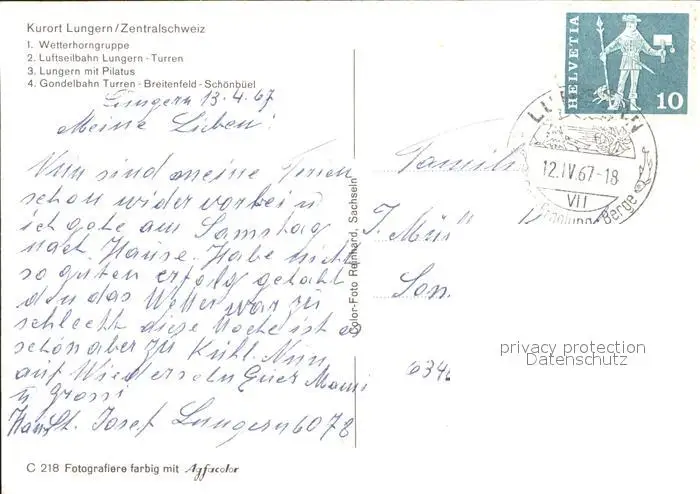 Kurort Lungern/Zentralschweiz
1. Wetterhorngruppe
2. Luftseilbahn Lungern - Turren
3. Lungern mit Pilatus
4. Gondelbahn Turren - Breitenfeld - Schönbüel
Lungern 13.4.67
Meine Lieben!
Nun sind meine Ferien
schon wider vorbei u
ich gehe am Samstag
nach Hause. Habe nicht
so guten erfolg gehabt
den das Wetter war zu
schlecht diese Woche ist es
schön aber zu Kühl. Nun
auf Wiedersehn Euer Mami
u Grossi
St. Josef Lungern 6078
C 218 Fotografiere farbig mit Agfacolor
Color-Foto Reinhard, Sachseln
HELVETIA
10
12.IV.67-18
VII
Berge
Famili
J. Mül
Son.
634
privacy protection
Datenschutz